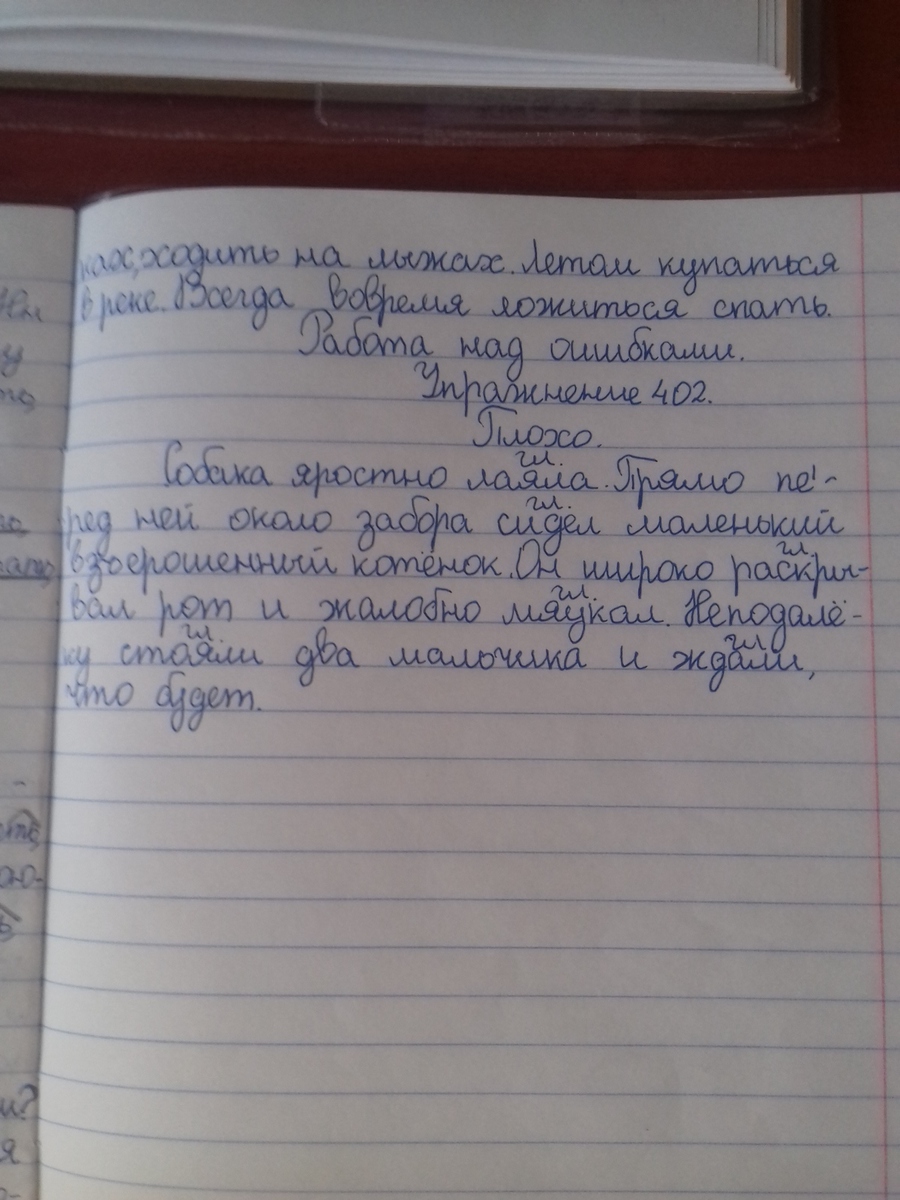 ках, ходить на лыжах. Летом купаться
в реке. Всегда вовремя ложиться спать.
Работа над ошибками.
Упражнение 402.
Плохо.
гл.
Собака яростно лаяла. Прямо пе-
гл.
ред ней около забора сидел маленький
гл.
взъерошенный котёнок. Он широко раскры-
гл.
вал рот и жалобно мяукал. Неподалё-
гл. гл
ку стояли два мальчика и ждали,
что будет.